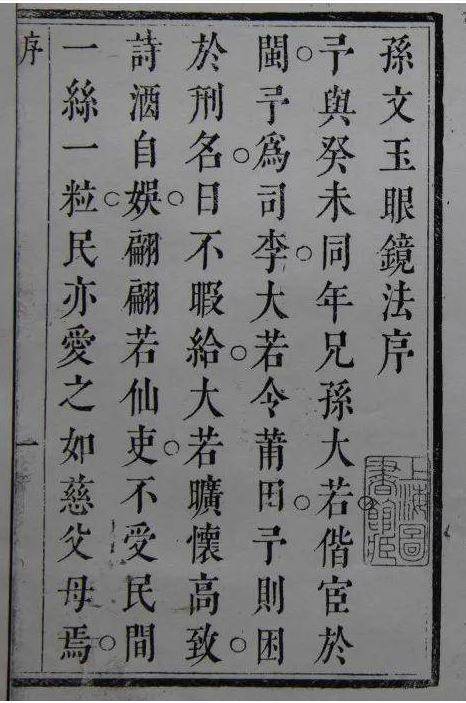 孫文玉眼鏡法序
予與癸未同年兄孫大若偕宦於
閩予爲司李大若令莆田予則困
於刑名日不暇給大若曠懷高致
詩酒自娛翩翩若仙吏不受民間
一絲一粒民亦愛之如慈父母焉
序
一
上海圖
書館藏